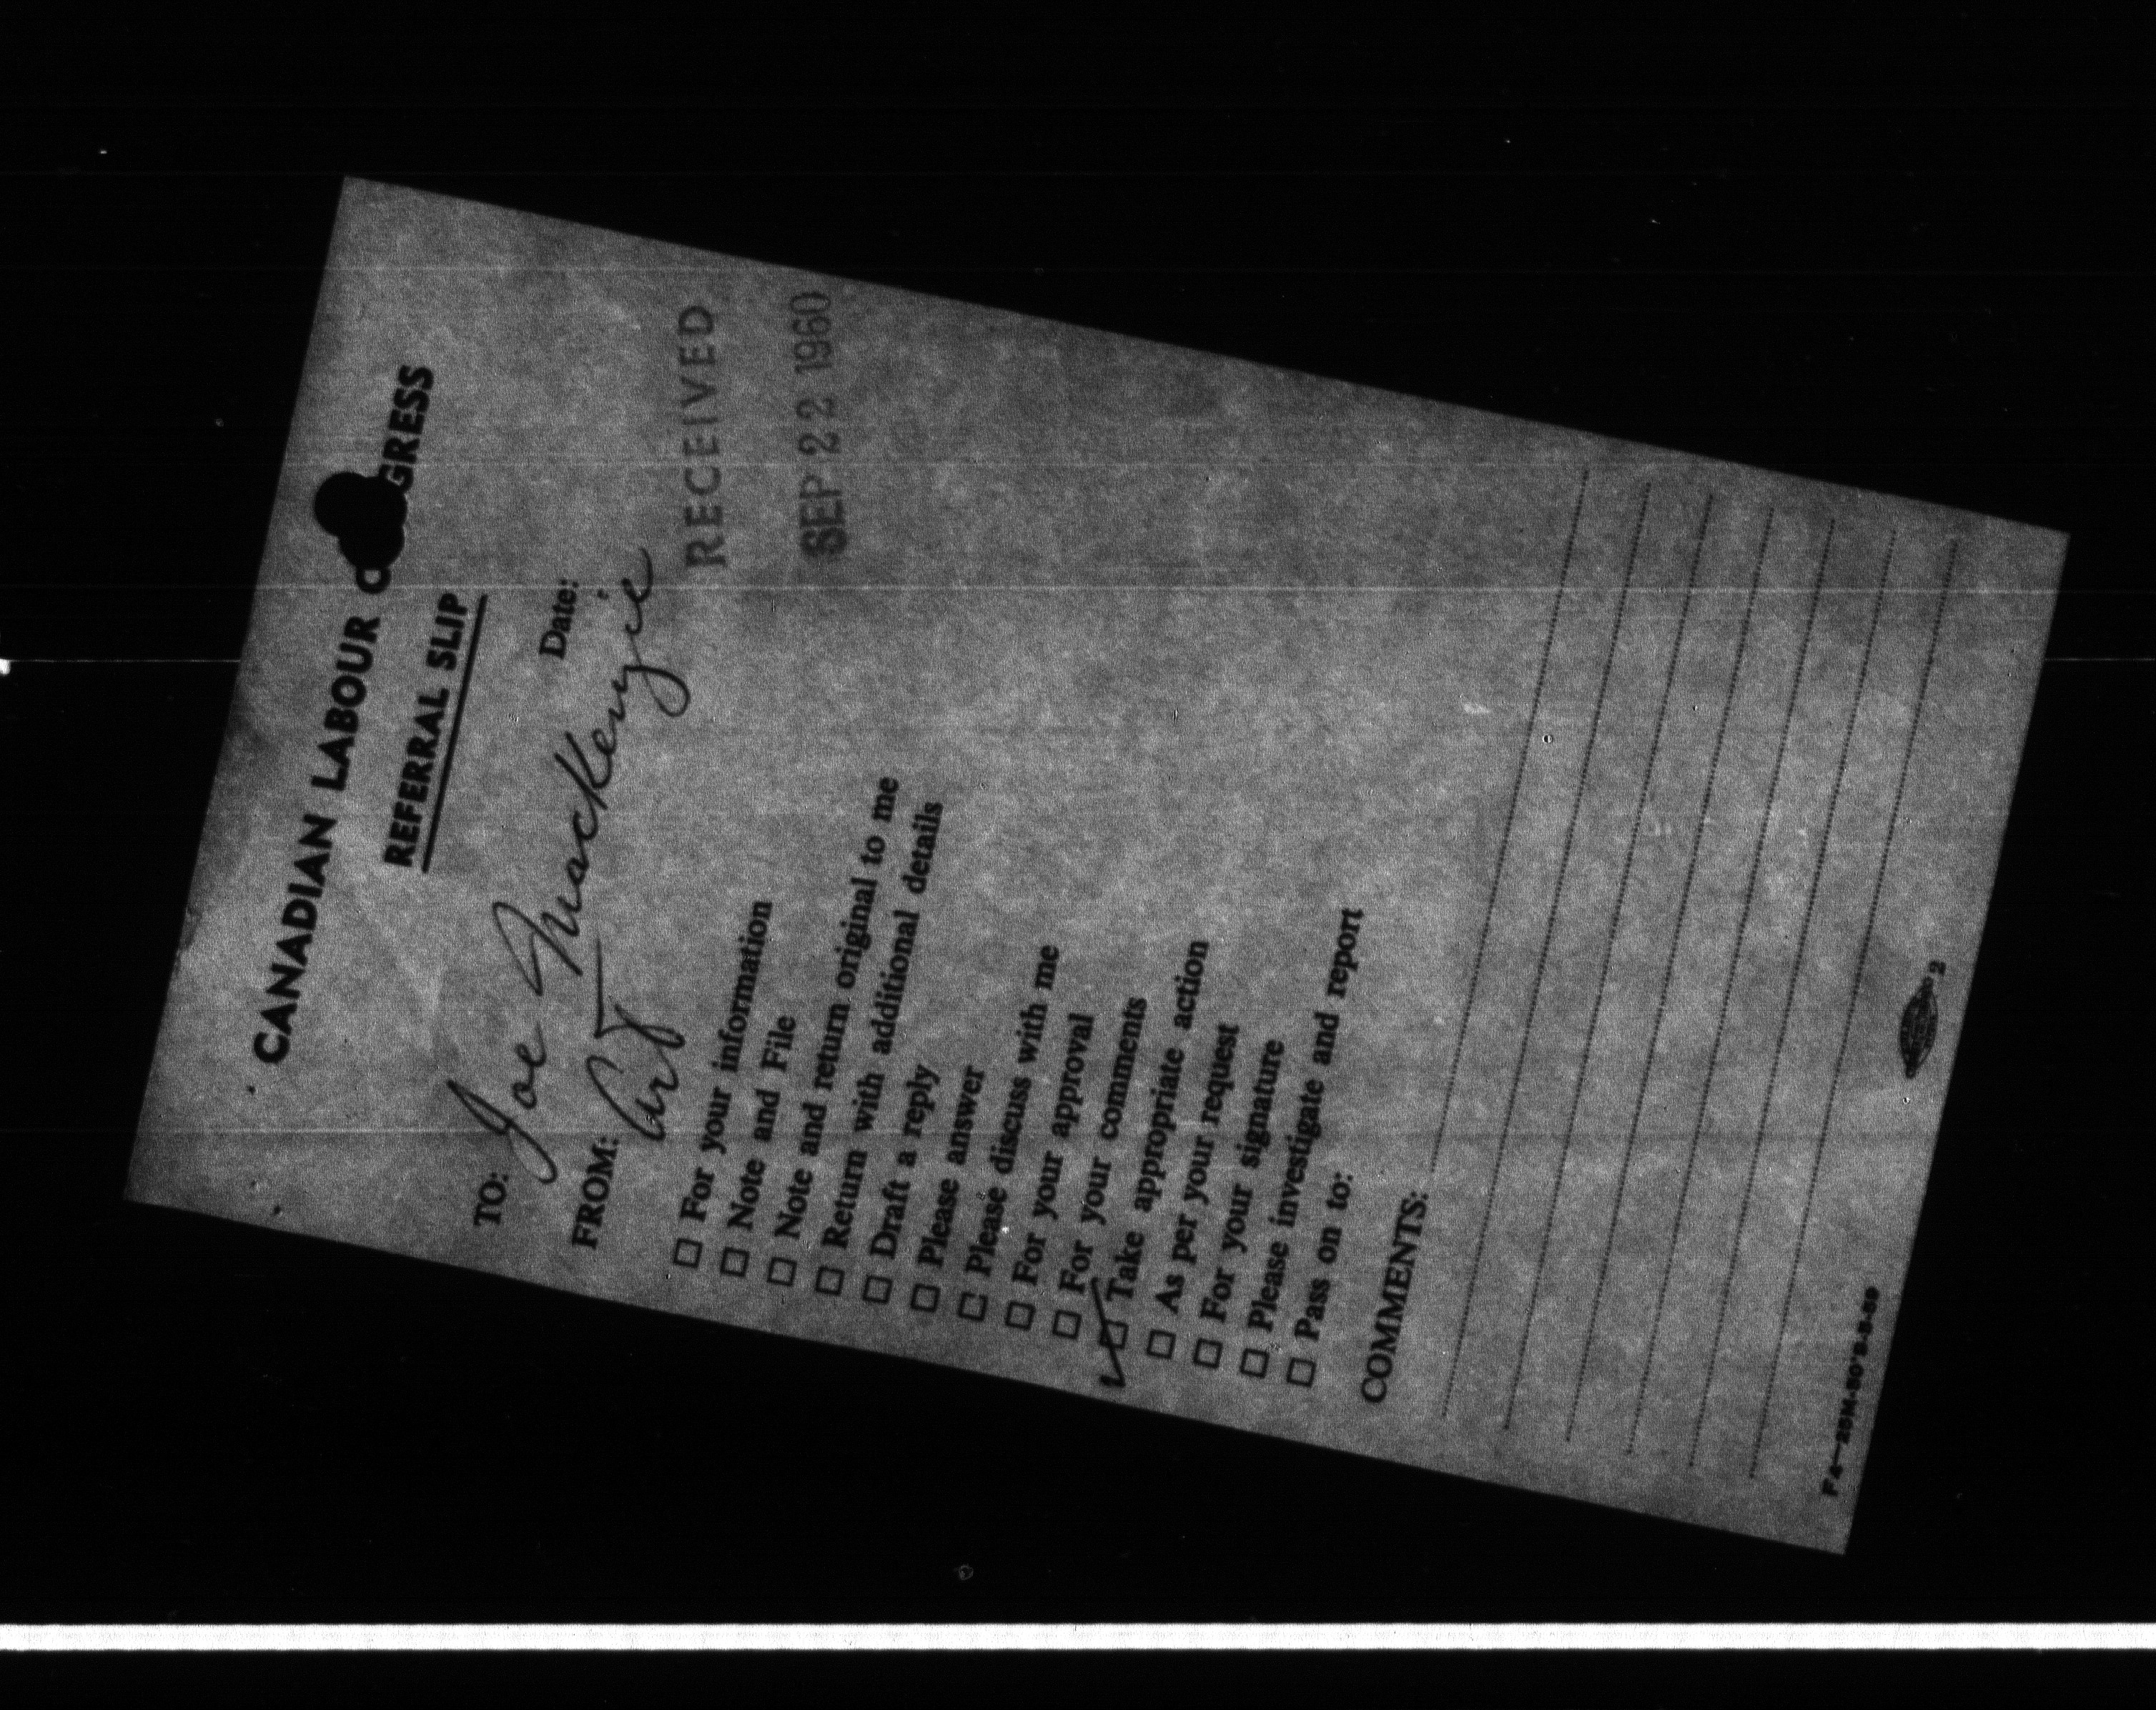 CANADIAN LABOUR C GRESS
REFERRAL SLIP
TO: Joe MacKenzie
Date:
FROM: Art
RECEIVED
SEP 22 1960
☐ For your information
☐ Note and File
☐ Note and return original to me
☐ Return with additional details
☐ Draft a reply
☐ Please answer
☐ Please discuss with me
☐ For your approval
☐ For your comments
☑ Take appropriate action
☐ As per your request
☐ For your signature
☐ Please investigate and report
☐ Pass on to:
COMMENTS:
2